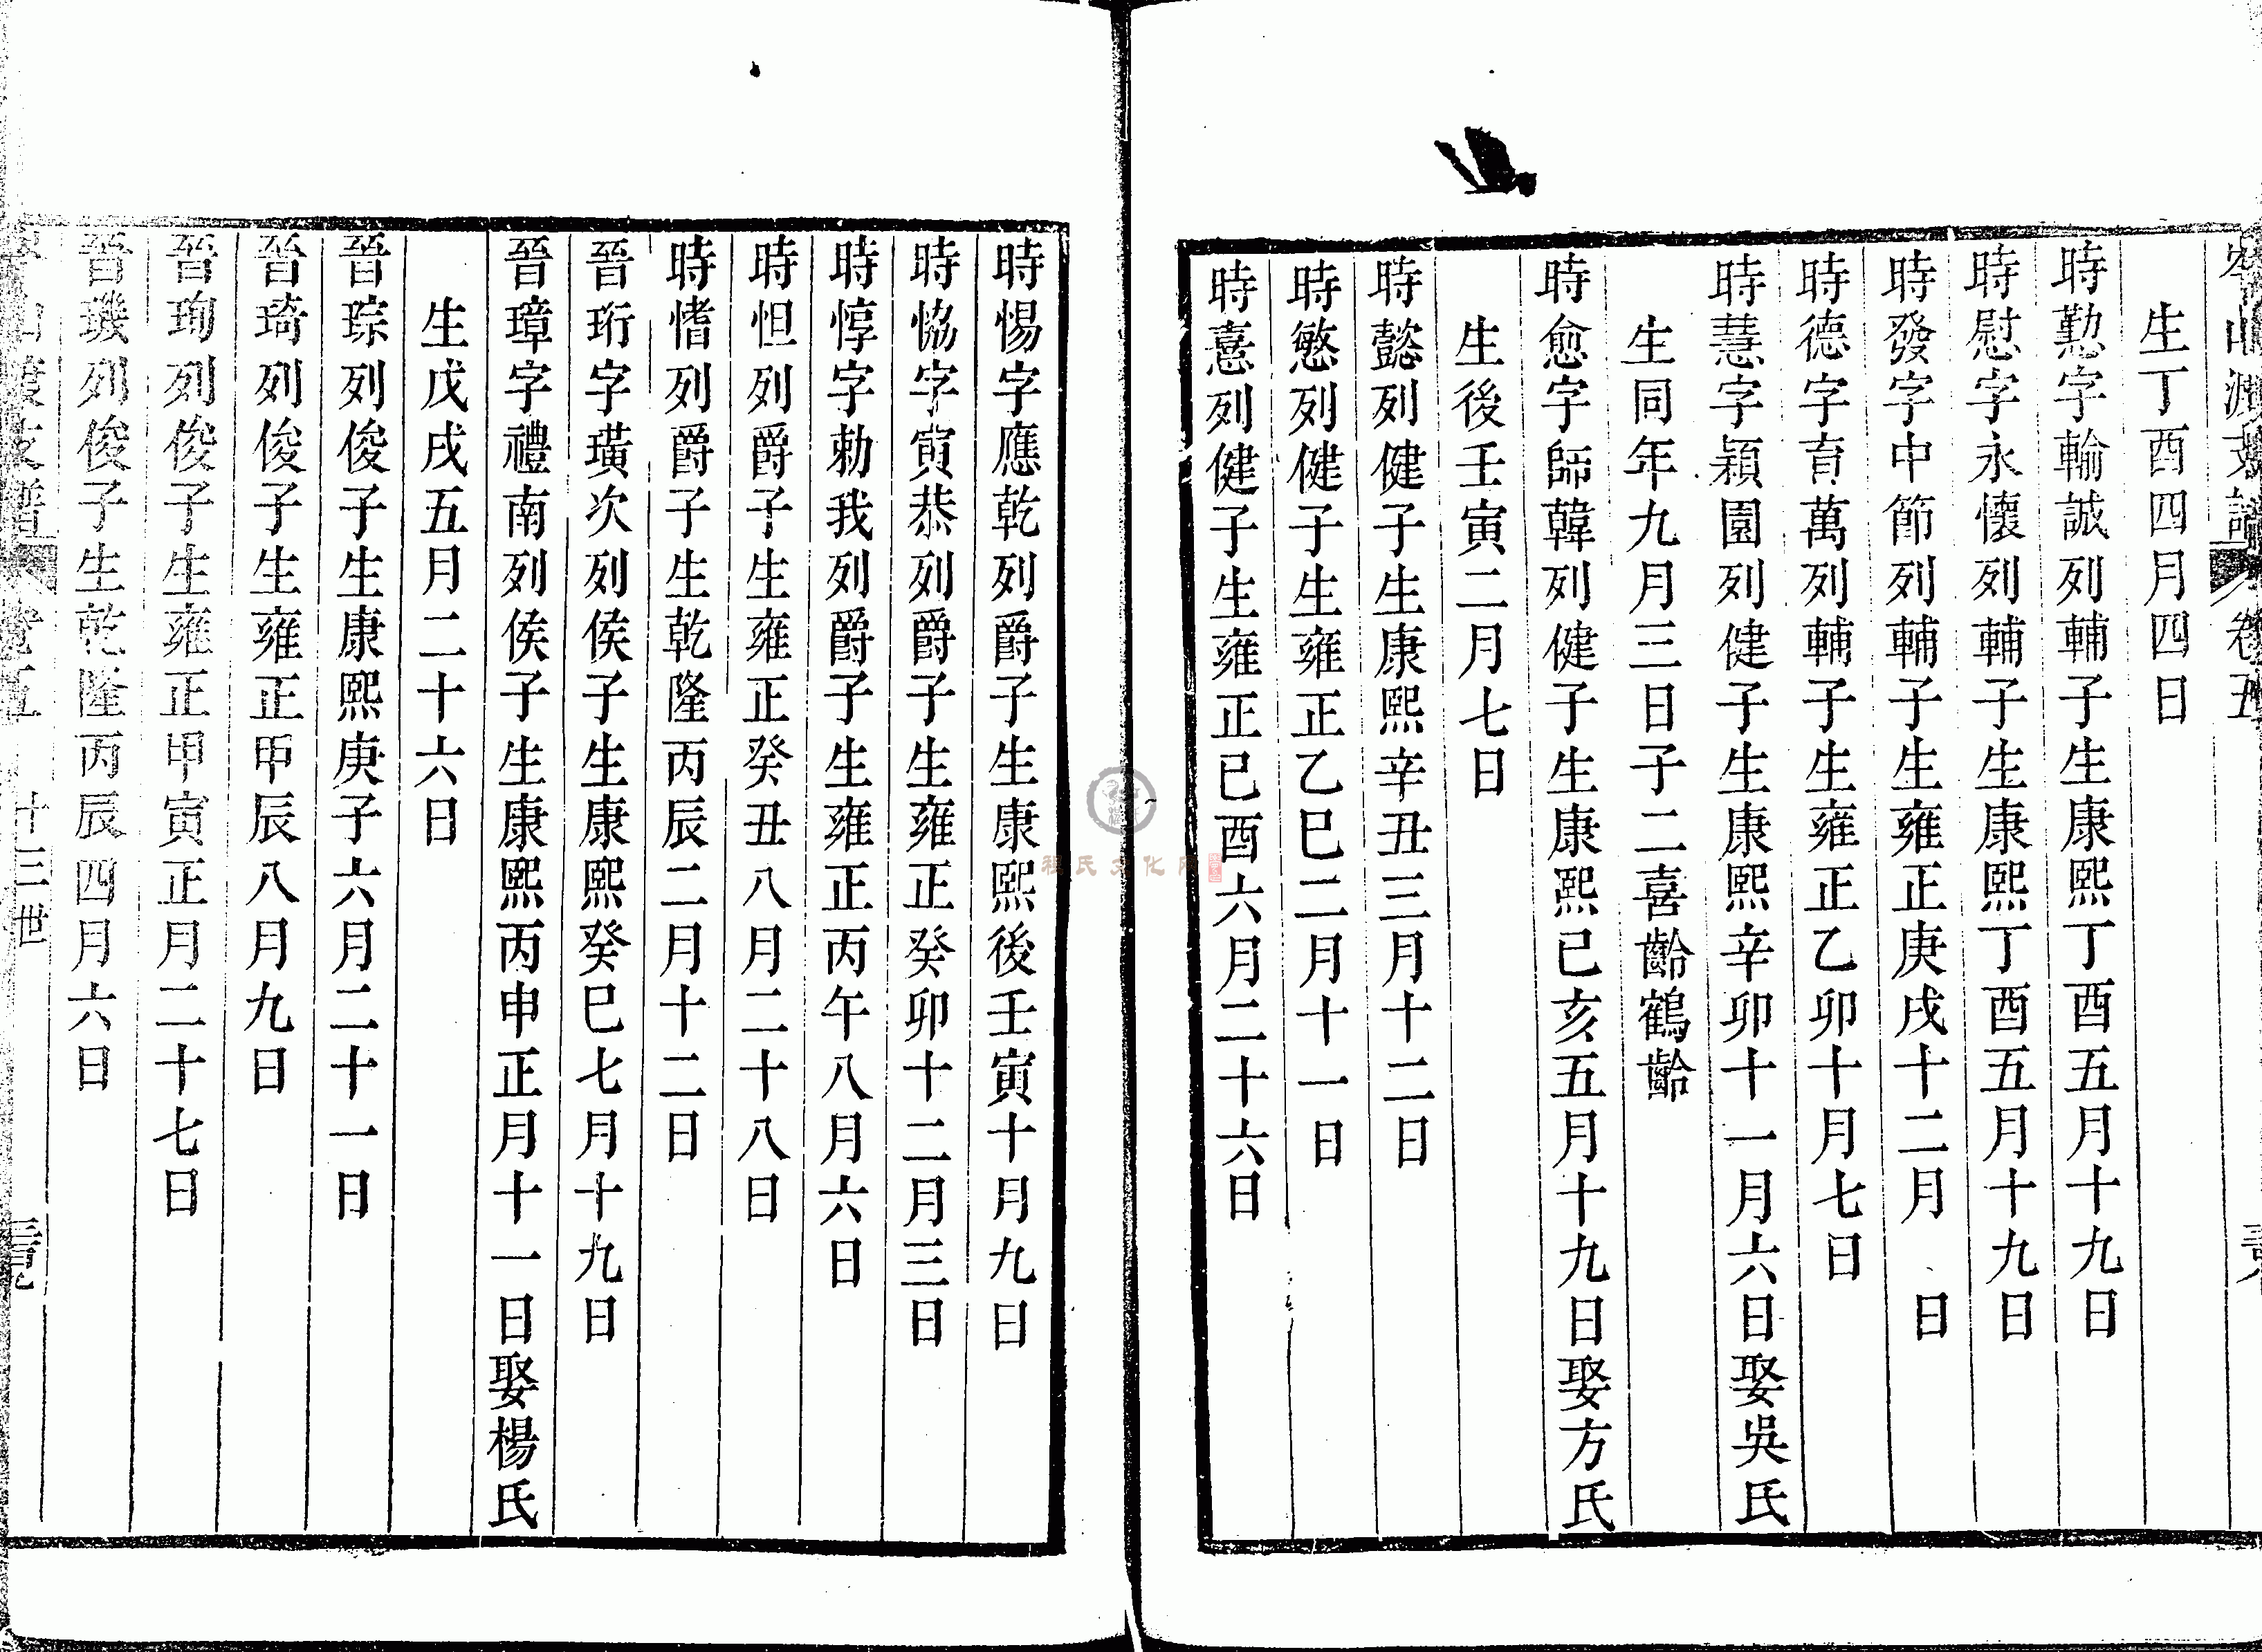 山渡支譜 卷五
生丁酉四月四日
時懃字輸誠列輔子生康熙丁酉五月十九日
時慰字永懷列輔子生康熙丁酉五月十九日
時發字中節列輔子生雍正庚戌十二月 日
時德字育萬列輔子生雍正乙卯十月七日
時慧字穎園列健子生康熙辛卯十一月六日娶吳氏
生同年九月三日子二喜齡鶴齡
時愈字師韓列健子生康熙己亥五月十九日娶方氏
生後壬寅二月七日
時懿列健子生康熙辛丑三月十二日
時慜列健子生雍正乙巳二月十一日
時憙列健子生雍正己酉六月二十六日
時惕字應乾列爵子生康熙後壬寅十月九日
時恊字寅恭列爵子生雍正癸卯十二月三日
時惇字勅我列爵子生雍正丙午八月六日
時怛列爵子生雍正癸丑八月二十八日
時愭列爵子生乾隆丙辰二月十二日
晉珩字璜次列侯子生康熙癸巳七月十九日
晉璋字禮南列侯子生康熙丙申正月十一日娶楊氏
生戊戌五月二十六日
晉琮列俊子生康熙庚子六月二十一日
晉琦列俊子生雍正甲辰八月九日
晉珣列俊子生雍正甲寅正月二十七日
晉璣列俊子生乾隆丙辰四月六日
山渡支譜 卷五 十三世
程氏文化网